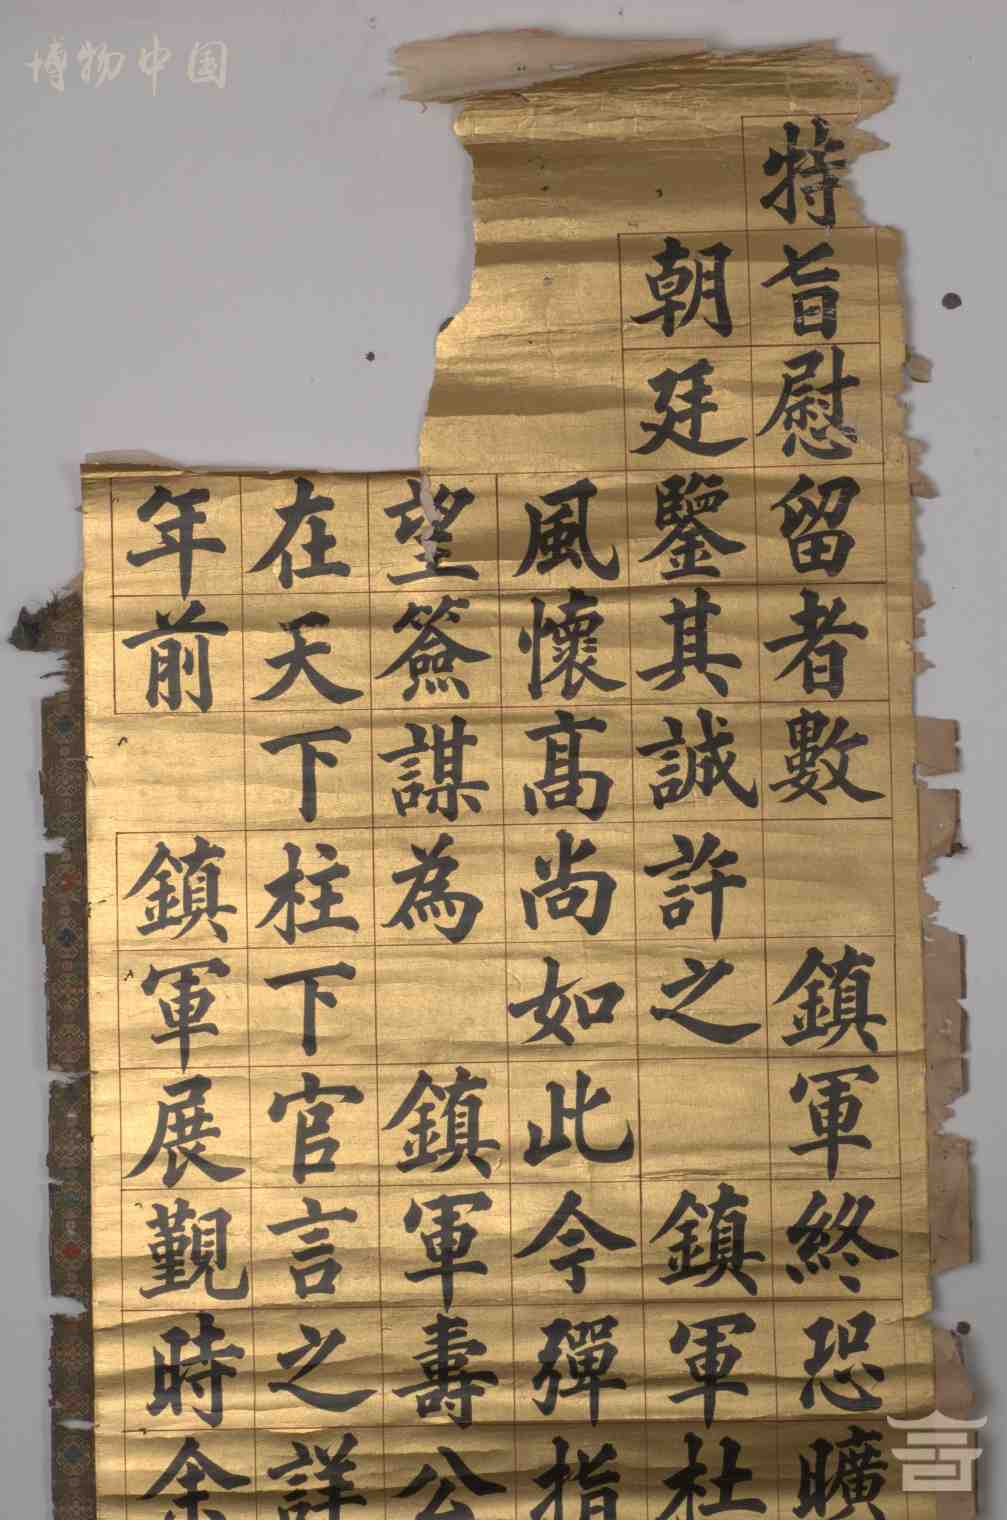 博物中国
特旨慰留者數鎮軍終恐曠
朝廷鑒其誠許之鎮軍杜
風懷高尚如此今彈指
望簽謀為鎮軍壽公
在天下柱下官言之詳
年前鎮軍展覲時余